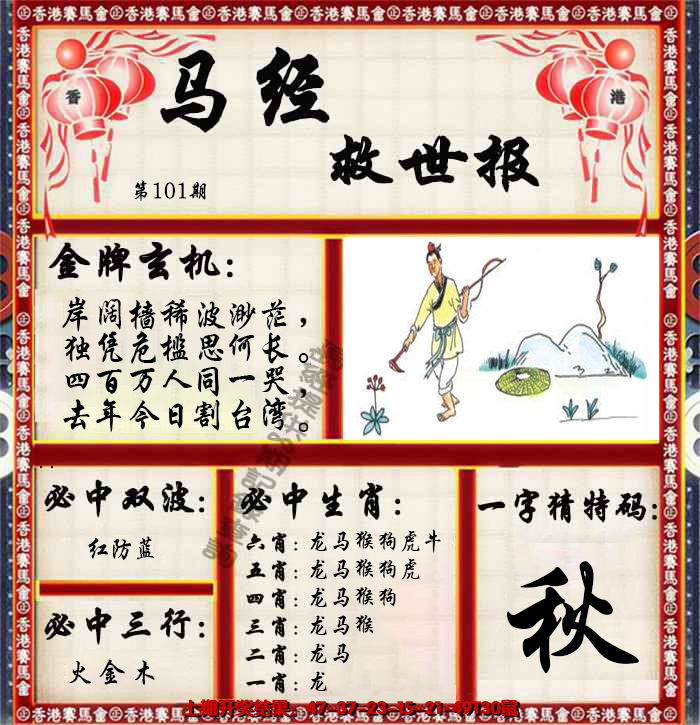 香港賽馬會
香
港
马经
救世报
第101期
金牌玄机:
岸阔樯稀波渺茫，
独凭危槛思何长。
四百万人同一哭，
去年今日割台湾。
必中双波:
红防蓝
必中三行:
火金木
必中生肖:
六肖:龙马猴狗虎牛
五肖:龙马猴狗虎
四肖:龙马猴狗
三肖:龙马猴
二肖:龙马
一肖:龙
一字猜特码:
秋
上期开奖结果: 47-37-23-15-21-49T30鼠